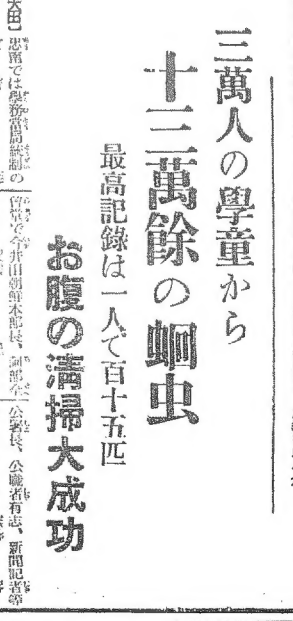 三萬人の學童から
十三萬餘の蛔虫
最高記錄は一人で百十五匹
お腹の淸掃大成功
大田】忠南では學務當局統制の
會堂で今井田朝鮮本部長、阿部全
公署長、公職者有志、新聞記者等